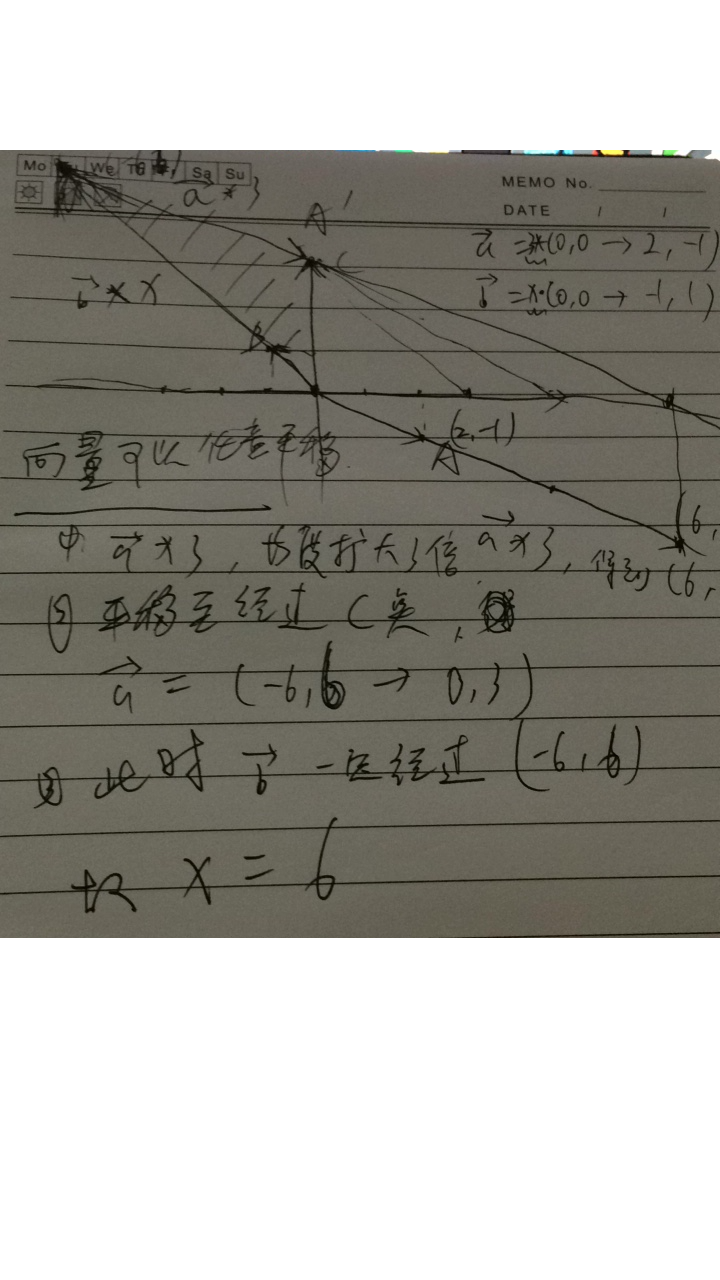 Mo We Sa Su
MEMO No.
DATE / /
a * 3
A'
a = 3*(0,0 → 2, -1)
b * x
b = x·(0,0 → -1, 1)
C
B
(2,-1)
A
向量可以任意平移
(6,
① a * 3, 长度扩大3倍 a * 3, 得到 (6,
② 平移至经过 C 点,
a = (-6,6 → 0,3)
③ 此时 b 一定经过 (-6,6)
故 x = 6